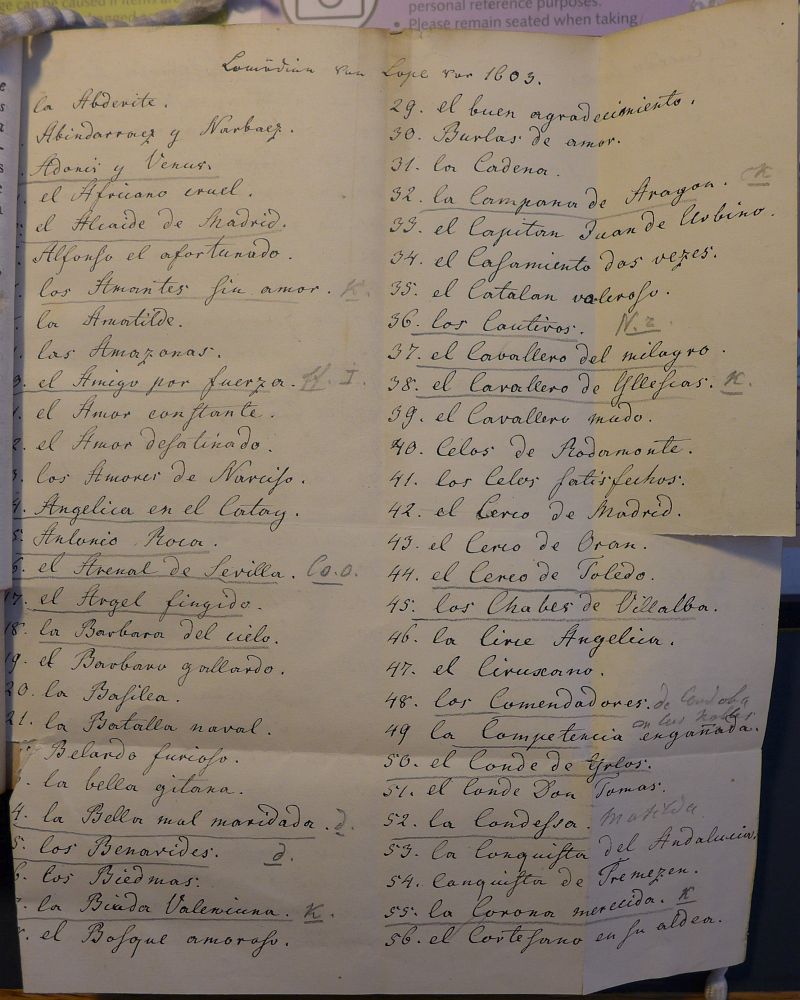 personal reference purposes.
• Please remain seated when taking
Comödien von Lope vor 1603.
la Abderite.
Abindarraez y Narbaez.
Adonis y Venus.
el Africano cruel.
el Alcaide de Madrid.
Alfonso el afortunado.
los Amantes sin amor. K.
la Amatilde.
las Amazonas.
el Amigo por fuerza. I.
el Amor constante.
el Amor desatinado.
los Amores de Narciso.
4. Angelica en el Catay.
5. Antonio Roca.
6. el Arenal de Sevilla. Co.o.
17. el Argel fingido.
18. la Barbara del cielo.
19. el Barbaro gallardo.
20. la Basilea.
21. la Batalla naval.
Belardo furioso.
la bella gitana.
4. la Bella mal maridada. d.
5. los Benavides. d.
6. los Biedmas.
la Biuda Valenciana. K.
el Bosque amoroso.
29. el buen agradecimiento.
30. Burlas de amor.
31. la Cadena.
32. la Campana de Aragon. K
33. el Capitan Juan de Urbino.
34. el Casamiento dos vezes.
35. el Catalan valeroso.
36. los Cautivos. N. 2.
37. el Cavallero del milagro.
38. el Cavallero de Yllescas. K.
39. el Cavallero mudo.
40. Celos de Rodamonte.
41. los Celos satisfechos.
42. el Cerco de Madrid.
43. el Cerco de Oran.
44. el Cerco de Toledo.
45. los Chabes de Villalba.
46. la Circe Angelica.
47. el Ciruxano.
48. los Comendadores. de Cordoba
49 la Competencia engañada. en los Nobles
50. el Conde de Yrlos.
51. el Conde Don Tomas.
52. la Condessa. Matilda
53. la Conquista del Andalucia.
54. Conquista de Tremezen.
55. la Corona merecida. K
56. el Cortesano en su aldea.